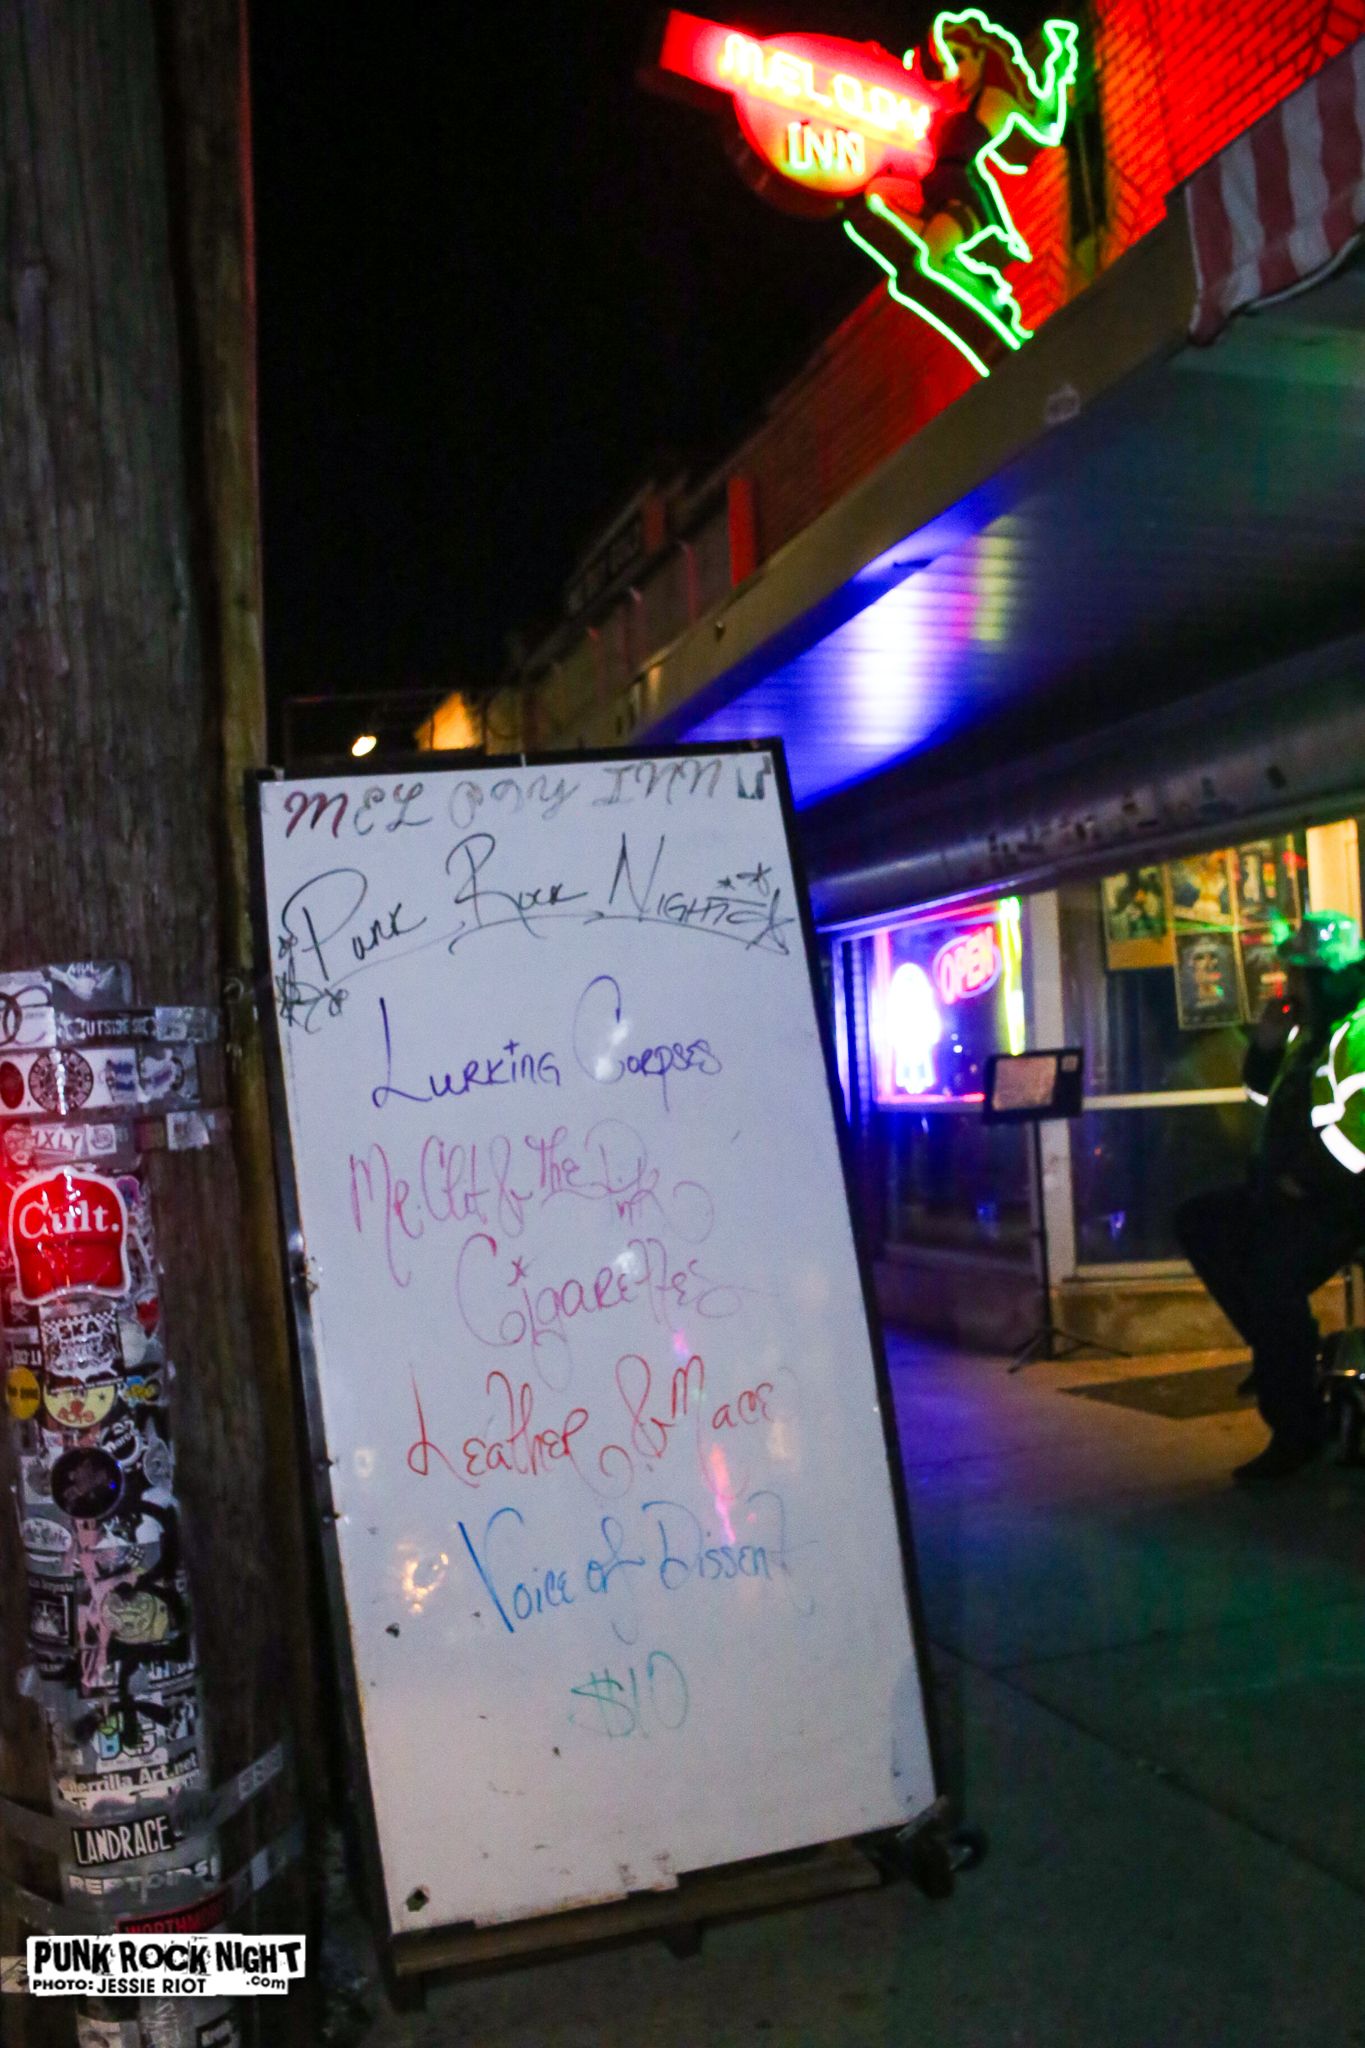 MELODY
INN
MELODY INN
Punk Rock Night
Lurking Corpses
Mr. Clit & The Pink
Cigarettes
Leather & Mace
Voice of Dissent
$10
OPEN
OUTSIDE
Cult.
SKA
Guerrilla Art.net
LANDRACE
PUNK ROCK NIGHT
.com
PHOTO: JESSIE RIOT